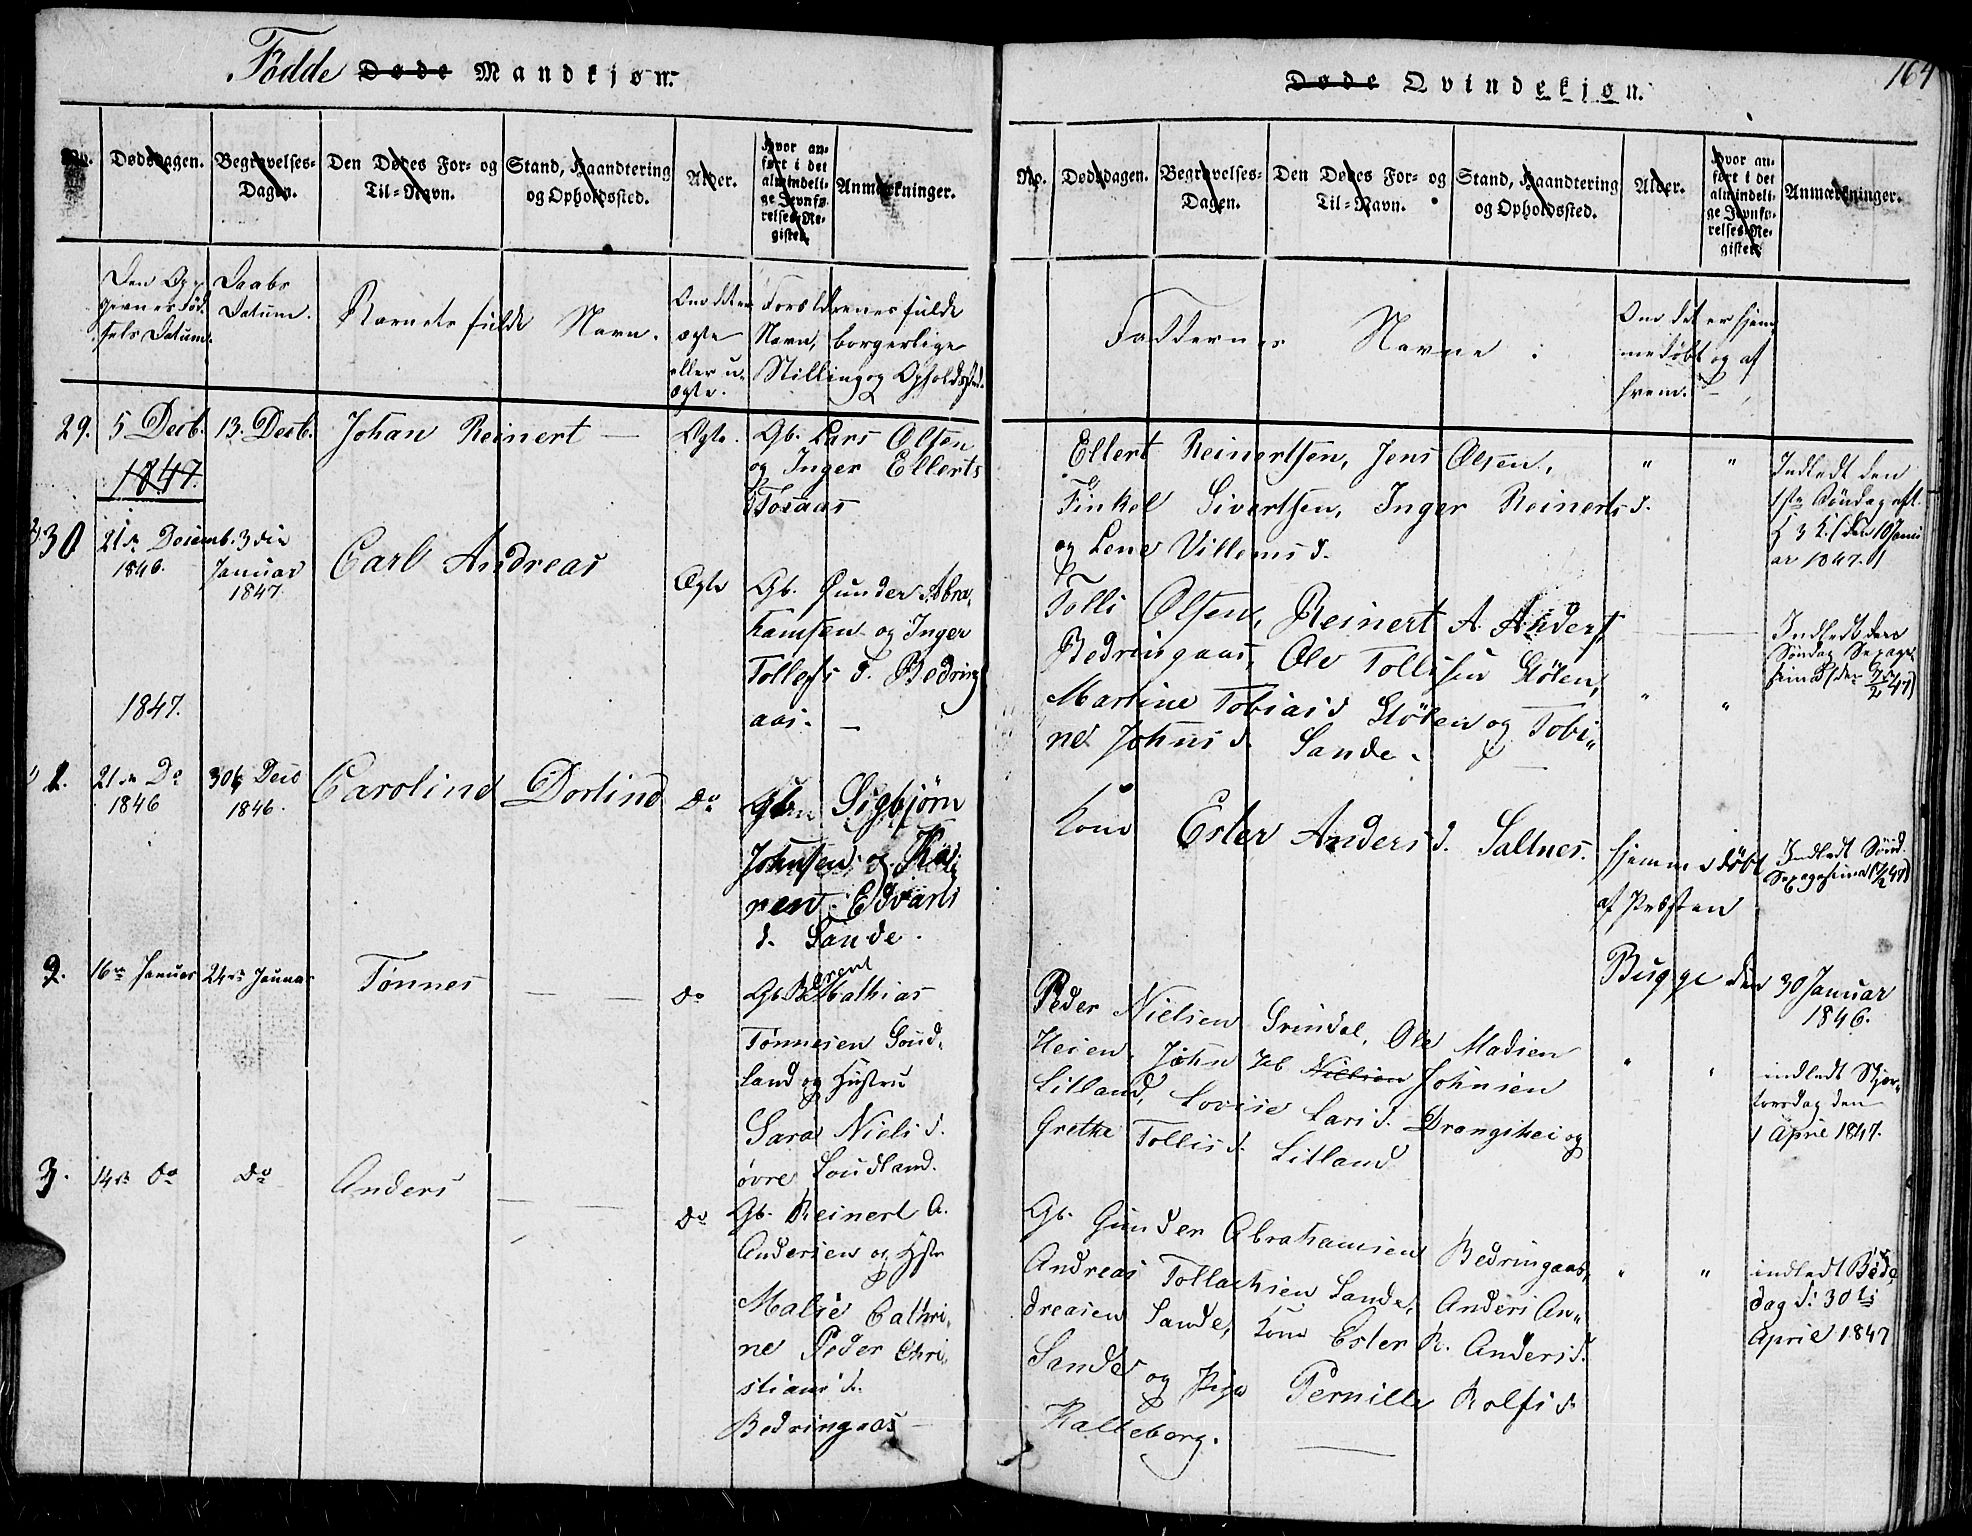 Fødde Døde Mandkjøn.
No.
Dødsdagen.
Begravelses-
Dagen.
Den Dødes For- og
Til-Navn.
Stand, Haandtering
og Opholdssted.
Alder.
Hvor an-
ført i det
almindeli-
ge Jevnfø-
relses-Re-
gister.
Anmærkninger.
Daabs
Datum.
Barnets fulde Navn.
Om det er
ægte
eller u-
ægte.
Forældrenes fulde
Navn, borgerlige
Stilling og Opholdssted.
29. 5 Decb. 13. Decb. Johan Reinert — Ægte.
Gb. Lars Olsen
og Inger Ellerts
d. Tosaas
1847.
30 21de Decemb. 1846. 3die Januar 1847. Carl Andreas Ægte
Gb. Gunder Abra-
hamsen og Inger
Tollefs d. Bedring
aas. —
1847.
1. 21de Do 1846 30te Decb 1846. Caroline Dorline Do
Gbm Sigbjörn
Johnsen og Ka-
ren Edvarts
d. Sande.
2. 16de Januar 24de Januar Tønnes — — do
Gb Mathias
Tønnesen Loud-
land og Hustru
Sara Niels d.
øvre Loudland.
3. 14de do do Anders — — do
Gb. Reinert A.
Andersen og Hstr
Malie Cathri-
ne Peder Chri-
stians d.
Bedringaas —
Døde Qvindekjøn.
164
No.
Dødsdagen.
Begravelses-
Dagen.
Den Dødes For- og
Til-Navn.
Stand, Haandtering
og Opholdssted.
Alder.
Hvor an-
ført i det
almindeli-
ge Jevnfø-
relses-Re-
gister.
Anmærkninger.
Faddernes Navne:
Om det er hjem-
medøbt og af
hvem.
Ellert Reinertsen, Jens Olsen,
Finkel Sivertsen, Inger Reinerts d.
og Lene Villums d.
" "
Indledt den
1ste Söndag eft.
H 3 K. (den 10 Janu
ar 1847.)
Tolli Olsen, Reinert A. Anders
Bedringaas, Ole Tollisen Sløten,
Martine Tobias d. Sløten og Tobi-
ne Johns d. Sande.
" "
Indledt den
Söndag Sexage-
sima (den 7/2 47)
Kone Ester Anders d. Saltnes.
hjemmedøbt
af Præsten
Bugge den 30 Januar
1846.
Indledt Sönd.
Sexagesima (7/2 47)
Peder Nielsen Svindal, Ole Madsen
Heien, John Jeb Nielsen Johnsen
Litland, Lovise Lars d. Drangshei og
Grethe Tollis d. Litland
" "
indledt Skjær-
torsdag den
1 April 1847.
Gb. Gunder Abrahamsen Bedringaas,
Andreas Tollachsen Sande, Anders An-
dreasen Sande, Kone Ester R. Anders d.
Sande og Pige Pernille Rolfs d.
Kalleberg.
" "
indledt Bede
dag d: 30te
April 1847